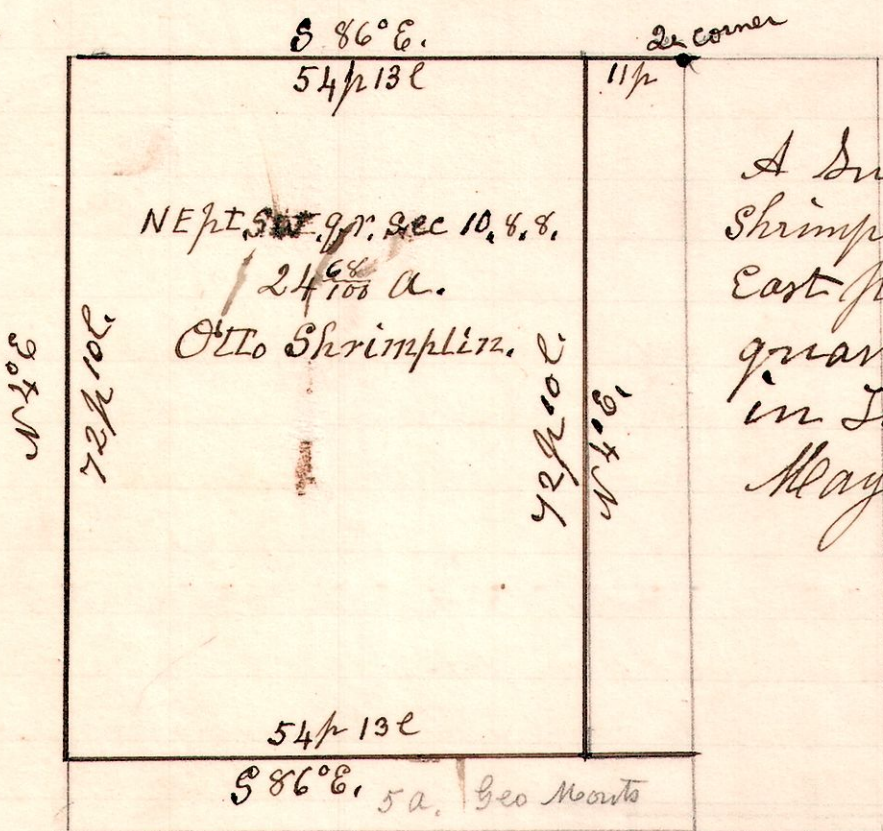 S 86° E.
2r corner
54p 13l
11p
NE pt. SW. qr. Sec 10. 8. 8.
24 68/100 a.
Otto Shrimplin.
N 4° E
72p 10l.
72p 10l.
N 4° E.
54p 13l
S 86° E.
5 a. Geo Monts
A Su
Shrimp
East p
quar
in T
May